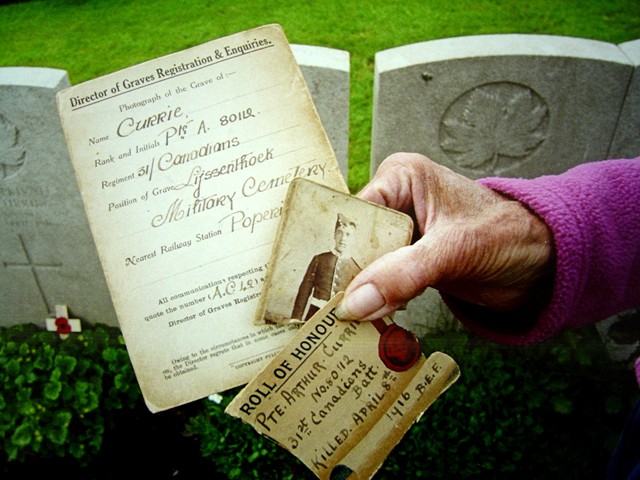 Director of Graves Registration & Enquiries.
Photograph of the Grave of :—
Name Currie,
Rank and Initials Pte A. 80112.
Regiment 31/Canadians
Position of Grave Lijssenthoek
Military Cemetery
Nearest Railway Station Poperi
All communications respecting
quote the number (A.C.
Director of Graves Registr
Owing to the circumstances in which the
the Director regrets that in some cases only
be obtained.
ROLL OF HONOUR
PTE. ARTHUR CURRIE
No. 80112
31st Canadians
Batt
KILLED. APRIL 8th
1916 B.E.F.